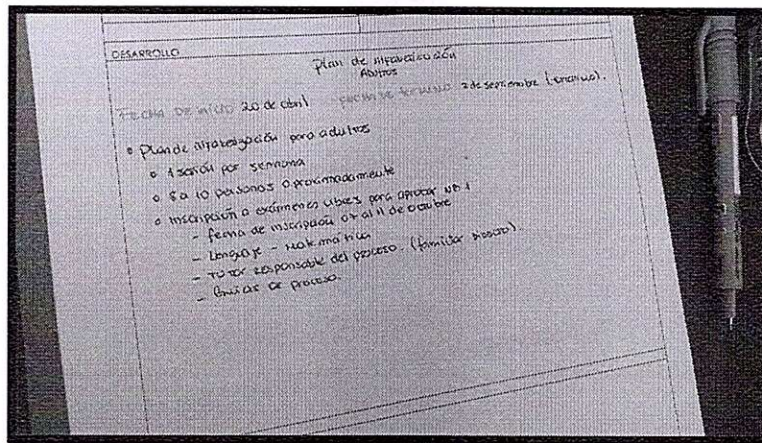 DESARROLLO
Plan de Alfabetización
Adultos
FECHA DE INICIO 20 de abril FECHA DE TERMINO 2 de septiembre
Plan de Alfabetización para adultos
1 sesión por semana
8 a 10 personas aproximadamente
Inscripción a exámenes libres para aprobar NB1
- fecha de inscripción 07 al 11 de octubre
- Lenguaje - Matemática
- Tutor responsable del proceso. (familiar
- de proceso.